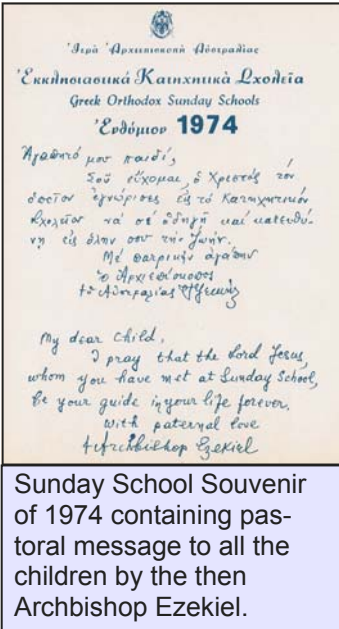 Ἱερὰ Ἀρχιεπισκοπὴ Αὐστραλίας
Ἐκκλησιαστικά Κατηχητικά Σχολεῖα
Greek Orthodox Sunday Schools
Ἐνθύμιον 1974
Ἀγαπητό μου παιδί,
Σοῦ εὔχομαι, ὁ Χριστός τόν
ὁποῖον ἐγνώρισες εἰς τό Κατηχητικόν
Σχολεῖον νά σέ ὁδηγῇ καί κατευθύ-
νῃ εἰς ὅλην σου τήν ζωήν.
Μέ πατρικήν ἀγάπην
ὁ Ἀρχιεπίσκοπος
† ὁ Αὐστραλίας Ἰεζεκιήλ
My dear child,
I pray that the Lord Jesus,
whom you have met at Sunday School,
be your guide in your life forever.
With paternal love
† Archbishop Ezekiel
Sunday School Souvenir
of 1974 containing pas-
toral message to all the
children by the then
Archbishop Ezekiel.